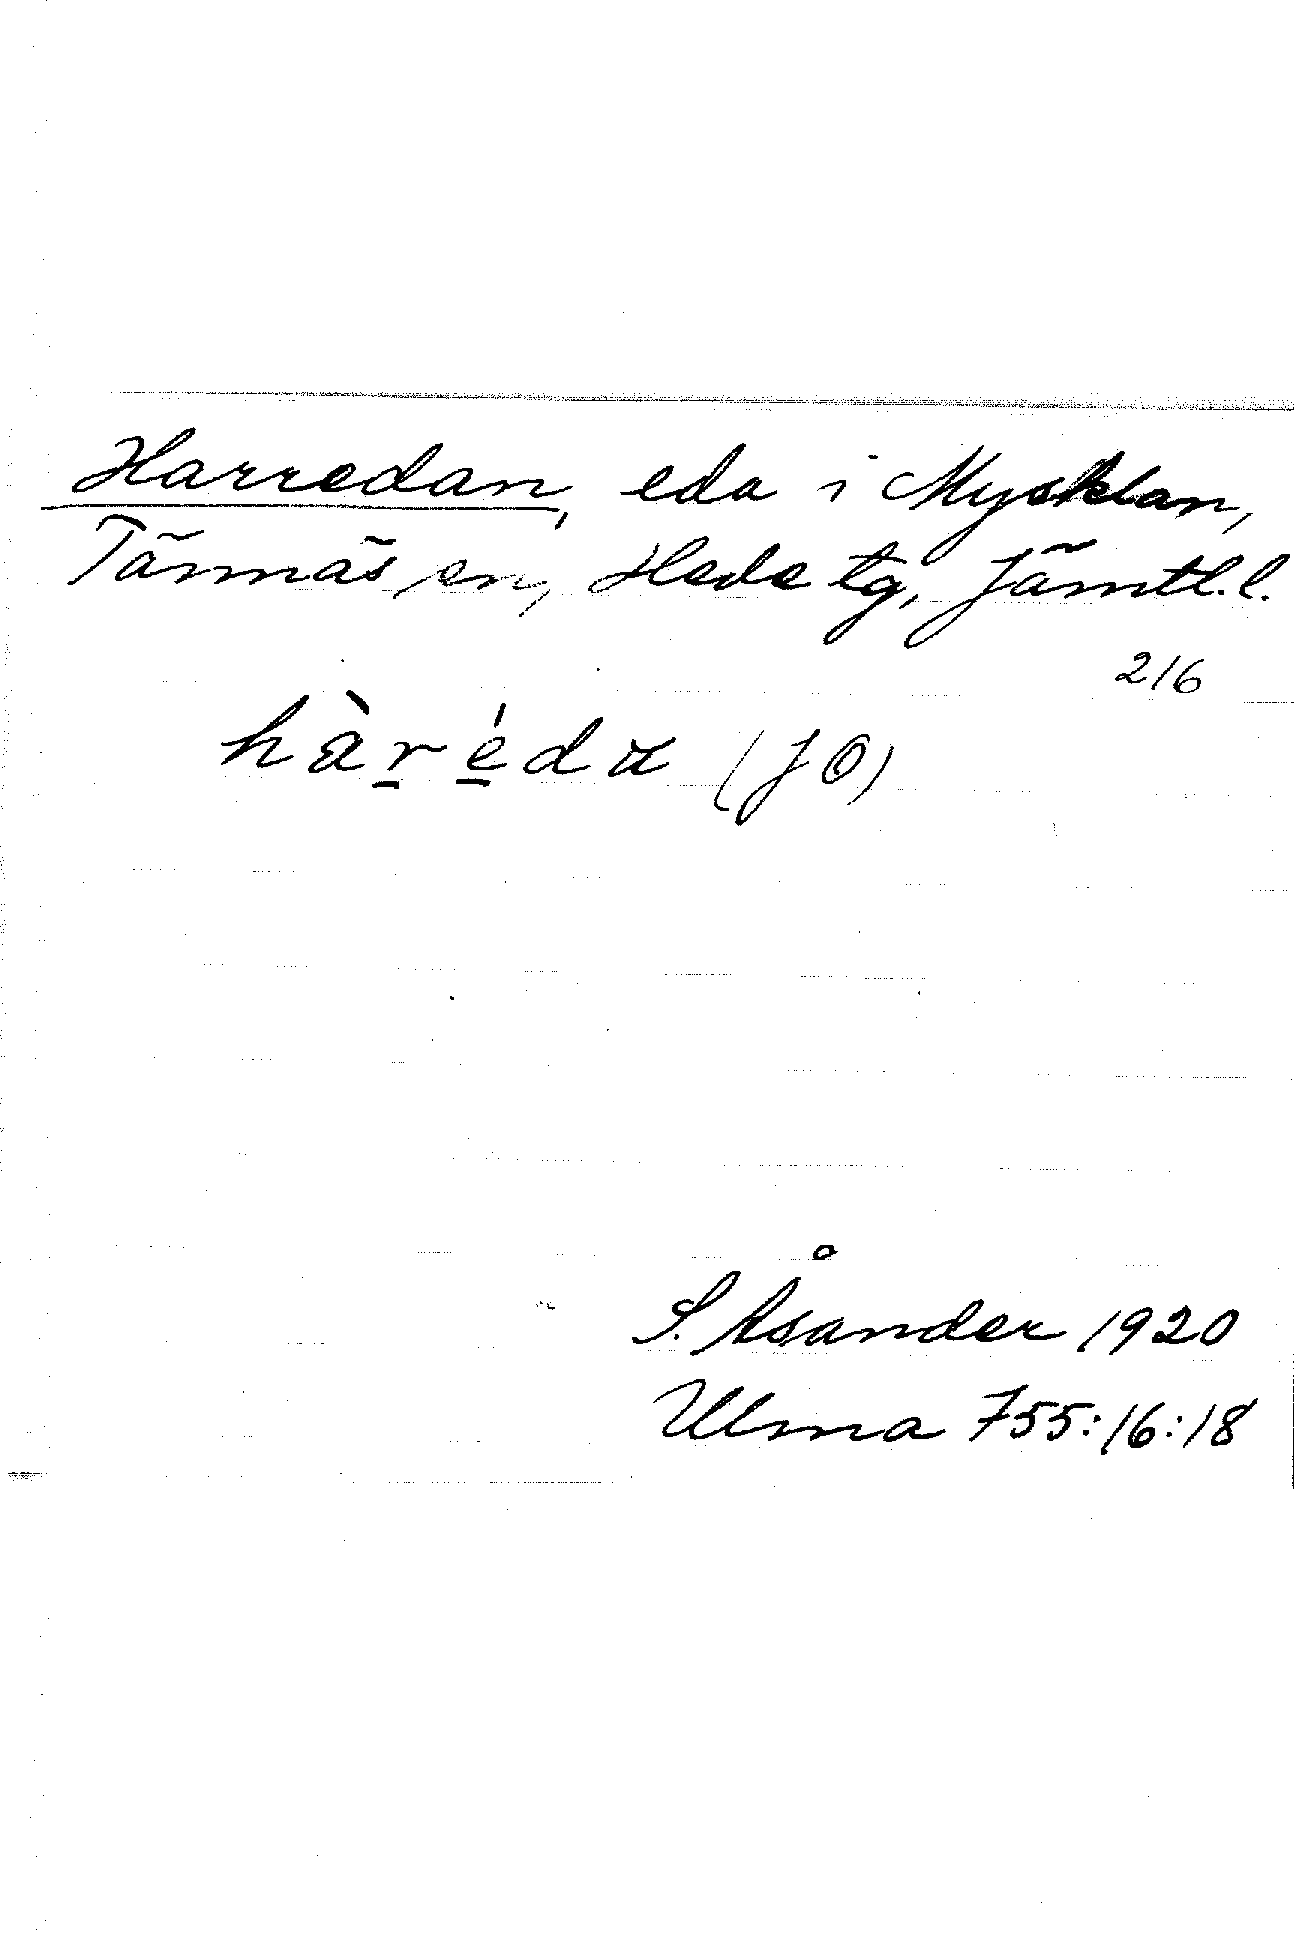 Harredan, eda i Mysklan,
Tännäs sn, Hede tg, Jämtl.l.
216
hàrédα (JÖ)
S. Åsander 1920
Ulma 755:16:18